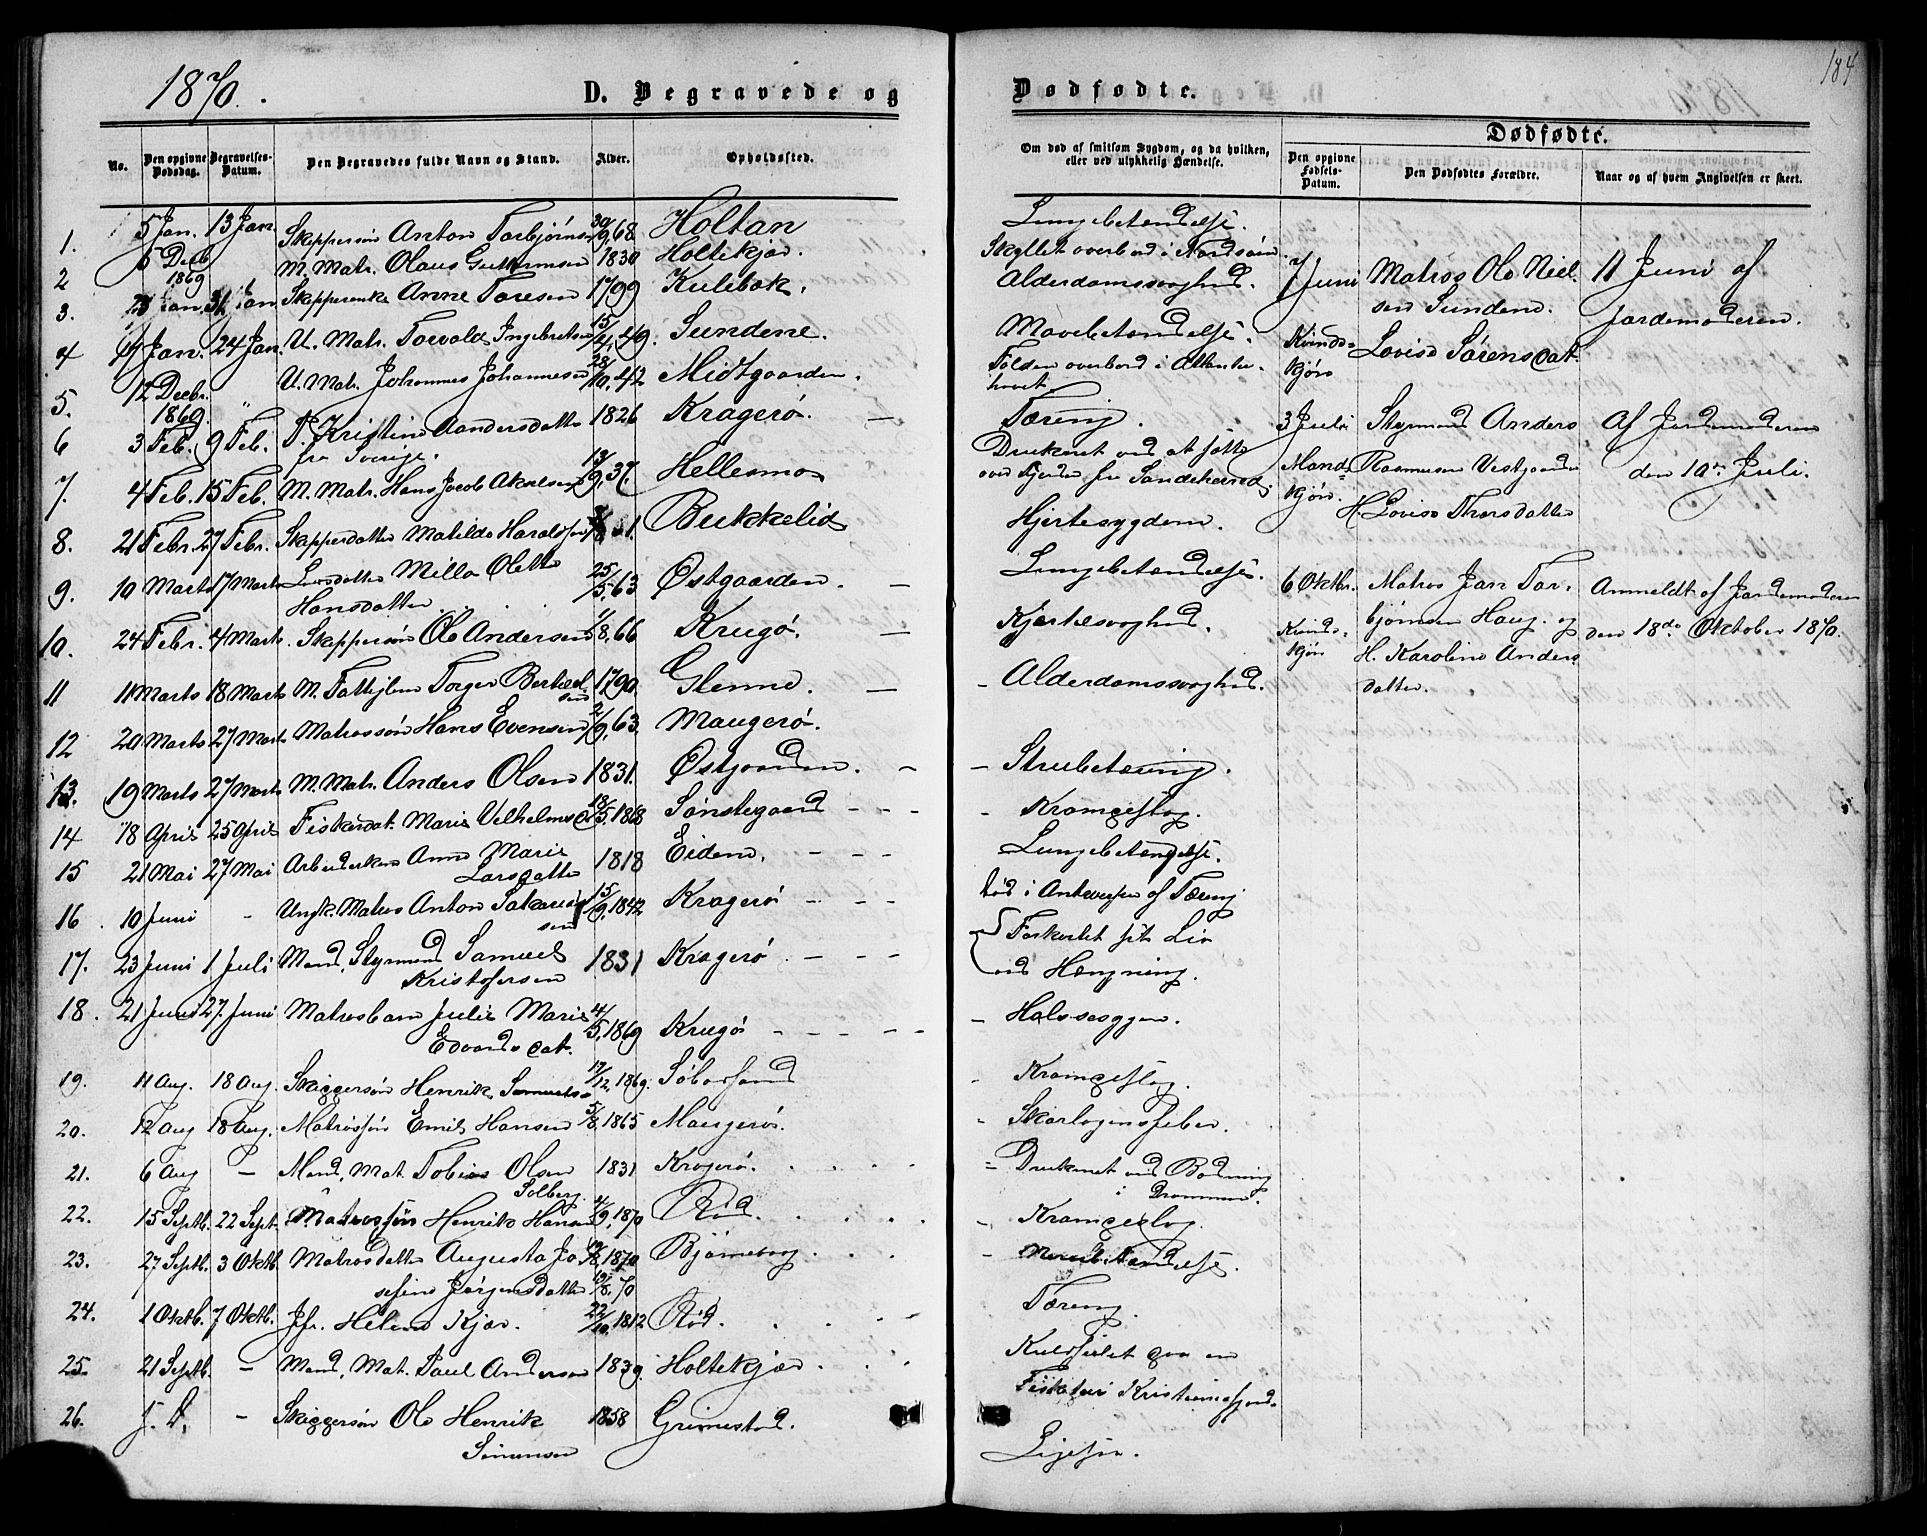 1870.
D. Begravede og
Dødfødte.
184
No.
Den opgivne Dødsdag.
Begravelses-Datum.
Den Begravedes fulde Navn og Stand.
Alder.
Opholdssted.
Om død af smitsom Sygdom, og da hvilken, eller ved ulykkelig Hændelse.
Dødfødte.
Den opgivne Fødsels-Datum.
Den Dødfødtes Forældre.
Naar og af hvem Angivelsen er skeet.
1. 5 Jan. 13 Jan Skippersøn Anton Torbjørnsen 30/9, 68 Holtan Lungebetændelse.
2 5 Decb 1869 M. Matr. Olaus Guttormsen 1830 Holtekjær. Skyllet overbord i Nordsøen
3. Jan. 31 Jan Skipperenke Anne Toresen 1799 Kulebak. Alderdomssvaghed.
4 Jan. 24 Jan. U. Matr. Torvald Ingebretsen 15/4, 49. Sundene. Mavebetændelse.
5. 12 Decbr. 1869 " U. Mat. Johannes Johannesen 28/10, 42 Midtgaarden. Falden overbord i Atlanterhavet
6 3 Feb. 9 Feb. P. Kristine Andersdatter fra Sverige. 1826 Kragerø. Tæring.
7. 4 Feb. 15 Feb. M. Matr. Hans Jacob Akselsen 13/9, 37. Hellesmo Druknet ved at sætte over Fjorden fra Sandekered
8. 21 Febr. 27 Febr. Skipperdatter Matilde Haraldsen Bukkelid Hjertesygdom.
9. 10 Marts 17 Marts Losdatter Milla Olette Hansdatter 25/5 63 Østgaarden. Lungebetændelse.
10. 24 Febr. 4 Marts. Skippersøn Ole Andersen 11/8, 66 Krugø. Kjertesvaghed.
11 11 Marts 18 Marts M. Fattiglem Torger Bertelsen 1790. Glenne. Alderdomssvaghed.
12 20 Marts 27 Marts Matrossøn Hans Evensen 2/9, 63. Maugerø. Strubetæring.
13. 19 Marts 27 Marts M. Matr. Anders Olsen 1831. Østgaarden.
14 18 April 25 April Fiskerdat. Marie Vilhelmsd 18/5. 1868 Sønstegaard Krampeslag.
15 21 Mai 27 Mai Arbeiderkone Anne Marie Larsdatter 1818 Eidem. Lungebetændelse.
16 10 Juni - Ungk. Matros Anton Sakariassen 15/9, 1842 Kragerø død i Antwerpen af Tæring
17. 23 Juni 1 Juli Mand, Styrmand Samuel Kristofersen 1831 Kragerø Forkortet sit Liv ved Hængning.
18. 21 Juni 27. Juni Matrosbarn Julie Marie Edvardsdat. 4/5, 1869 Krugø Halssyge.
19. 11 Aug. 18 Aug. Skippersøn Henrik Samuels- 17/12, 1869. Krampeslag.
20. 12 Aug 18 Aug. Matrossøn Emil Hansen 5/8, 1865 Maugerø. Skarlagensfeber.
21. 6 Aug - Mand, Mat. Tobias Olsen Solberg. 1831 Kragerø. Druknet ved Badning i Drammen.
22. 15 Septb. 22 Sept. Matrossøn Henrik Hansen 4/9, 1870 Rød. Krampeslag.
23. 27 Septb. 3 Oktb. Matrosdatter Augusta Josefine Jørgensdatter 19/8. 70 Bjørneborg.
24. 1 Oktb. 7 Oktb. Jfr. Helene Kjær. 22/10, 1812 Rød. Tæring.
25. 21 Septb. - Mand, Mat. Paul Andersen 1839 Holtekjær. Kuldseilet paa en Fisketur i Kristianiafjord.
26. - Skippersøn Ole Henrik Simensen 1858 Grimestad. Ligesaa.
7 Juni Kvindekjøn Matros Ole Nielsen Sundene. Lovise Sørensdat. 11 Juni af Jordemoderen.
3 Juli Mandkjøn. Styrmand Anders Rasmussen Vestgaarden H. Lovise Thorsdatter Af Jordemoderen den 10de Juli.
6 Oktbr. Kvindekjøn Matros Jan Torbjørnsen Haug. og H. Karoline Andersdatter. Anmeldt af Jordemoderen den 18de Oktober 1870.